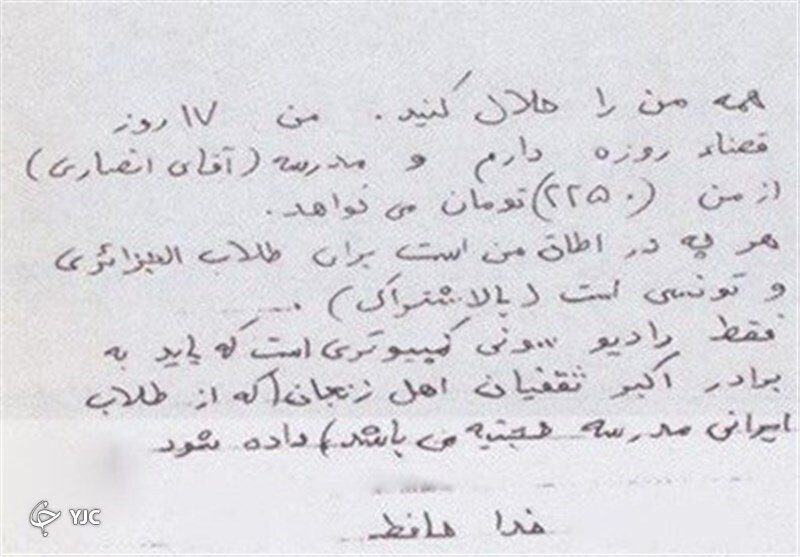 همه من را حلال کنید . من ۱۷ روز
قضاء روزه دارم و مدرسه (آقای انصاری)
از من (۲۲۵۰) تومان می خواهد .
هر چه در اطاق من است برای طلاب الجزائری
و تونسی است (بالاشتراک) .
فقط رادیو سونی کمپیوتری است که باید به
برادر اکبر ثقفیان اهل زنجان (که از طلاب
ایرانی مدرسه حجتیه می باشد) داده شود
خدا حافظ
YJC